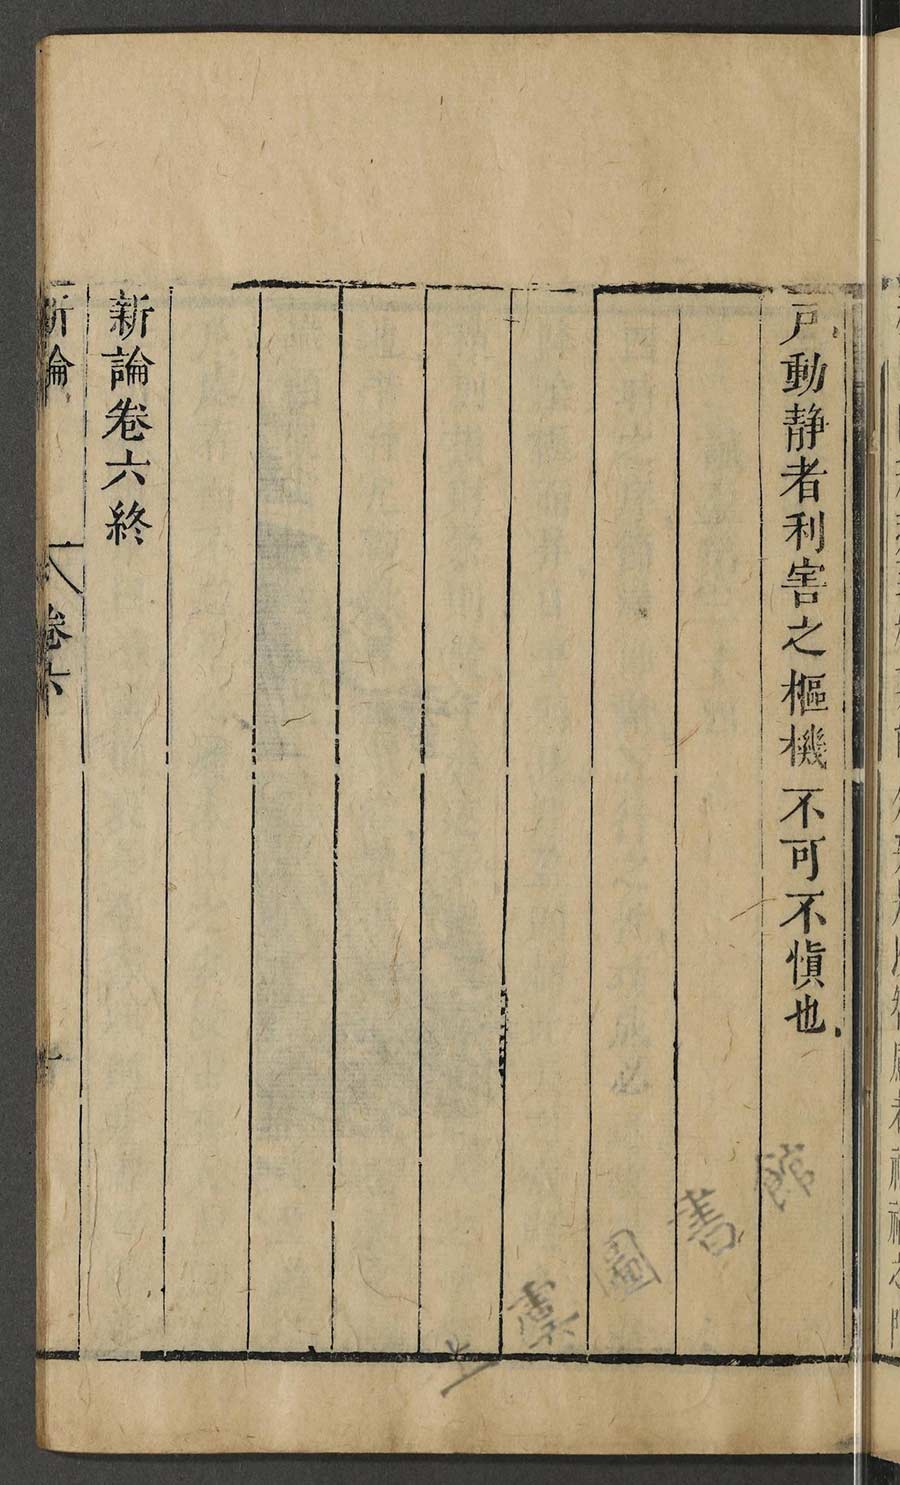 戸動靜者利害之樞機不可不慎也
新論卷六終
新論
卷六
上虞圖書館